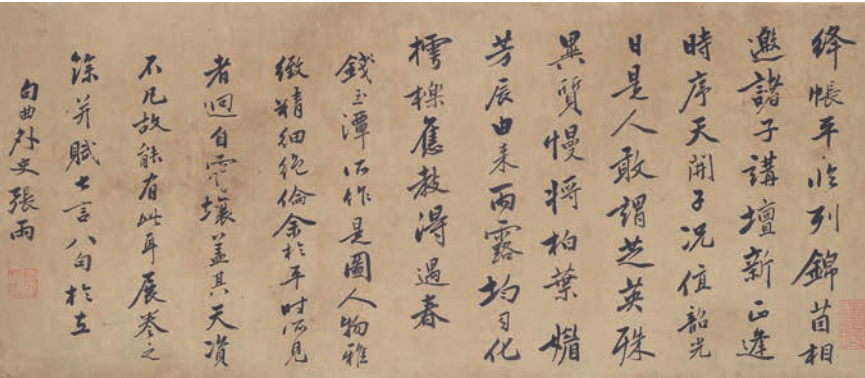 絳帳平臨列錦茵相
邀諸子講壇新正逢
時序天開子況值韶光
日是人敢謂芝英殊
異質慢將柏葉媚
芳辰由来雨露均勻化
樗櫟應教淂過春
錢玉潭所作是圖人物雅
緻精細絶倫余於平時所見
者迥自霄壤蓋其天資
不凡故能有此耳展卷之
餘并賦七言八句於左
句曲外史張雨